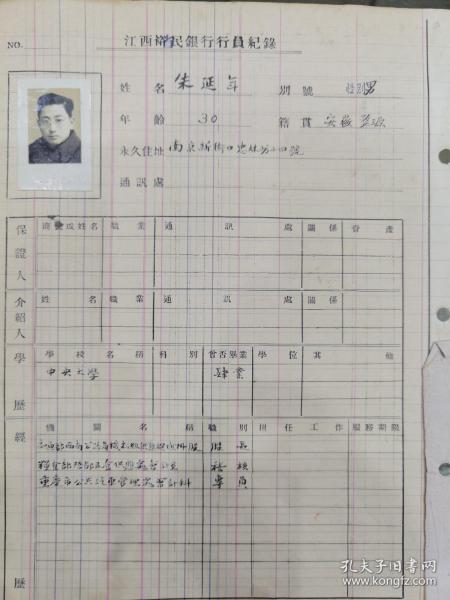 NO.
江西裕民銀行行員紀錄
姓名 朱延年 別號 性別男
年齡 30 籍貫 安徽婺源
永久住址 南京新街口忠林坊 號
通訊處
保證人
商號或姓名 職業 通訊處 關係 資產
介紹人
姓名 職業 通訊處 關係
學歷
學校名稱 科別 曾否畢業 學位 其他
中央大學 肄業
經歷
機關名稱 職別 担任工作 服務期限
股長
稽核
重慶市公共汽車管理處會計科 專員
孔夫子旧书网
www.kongfz.com